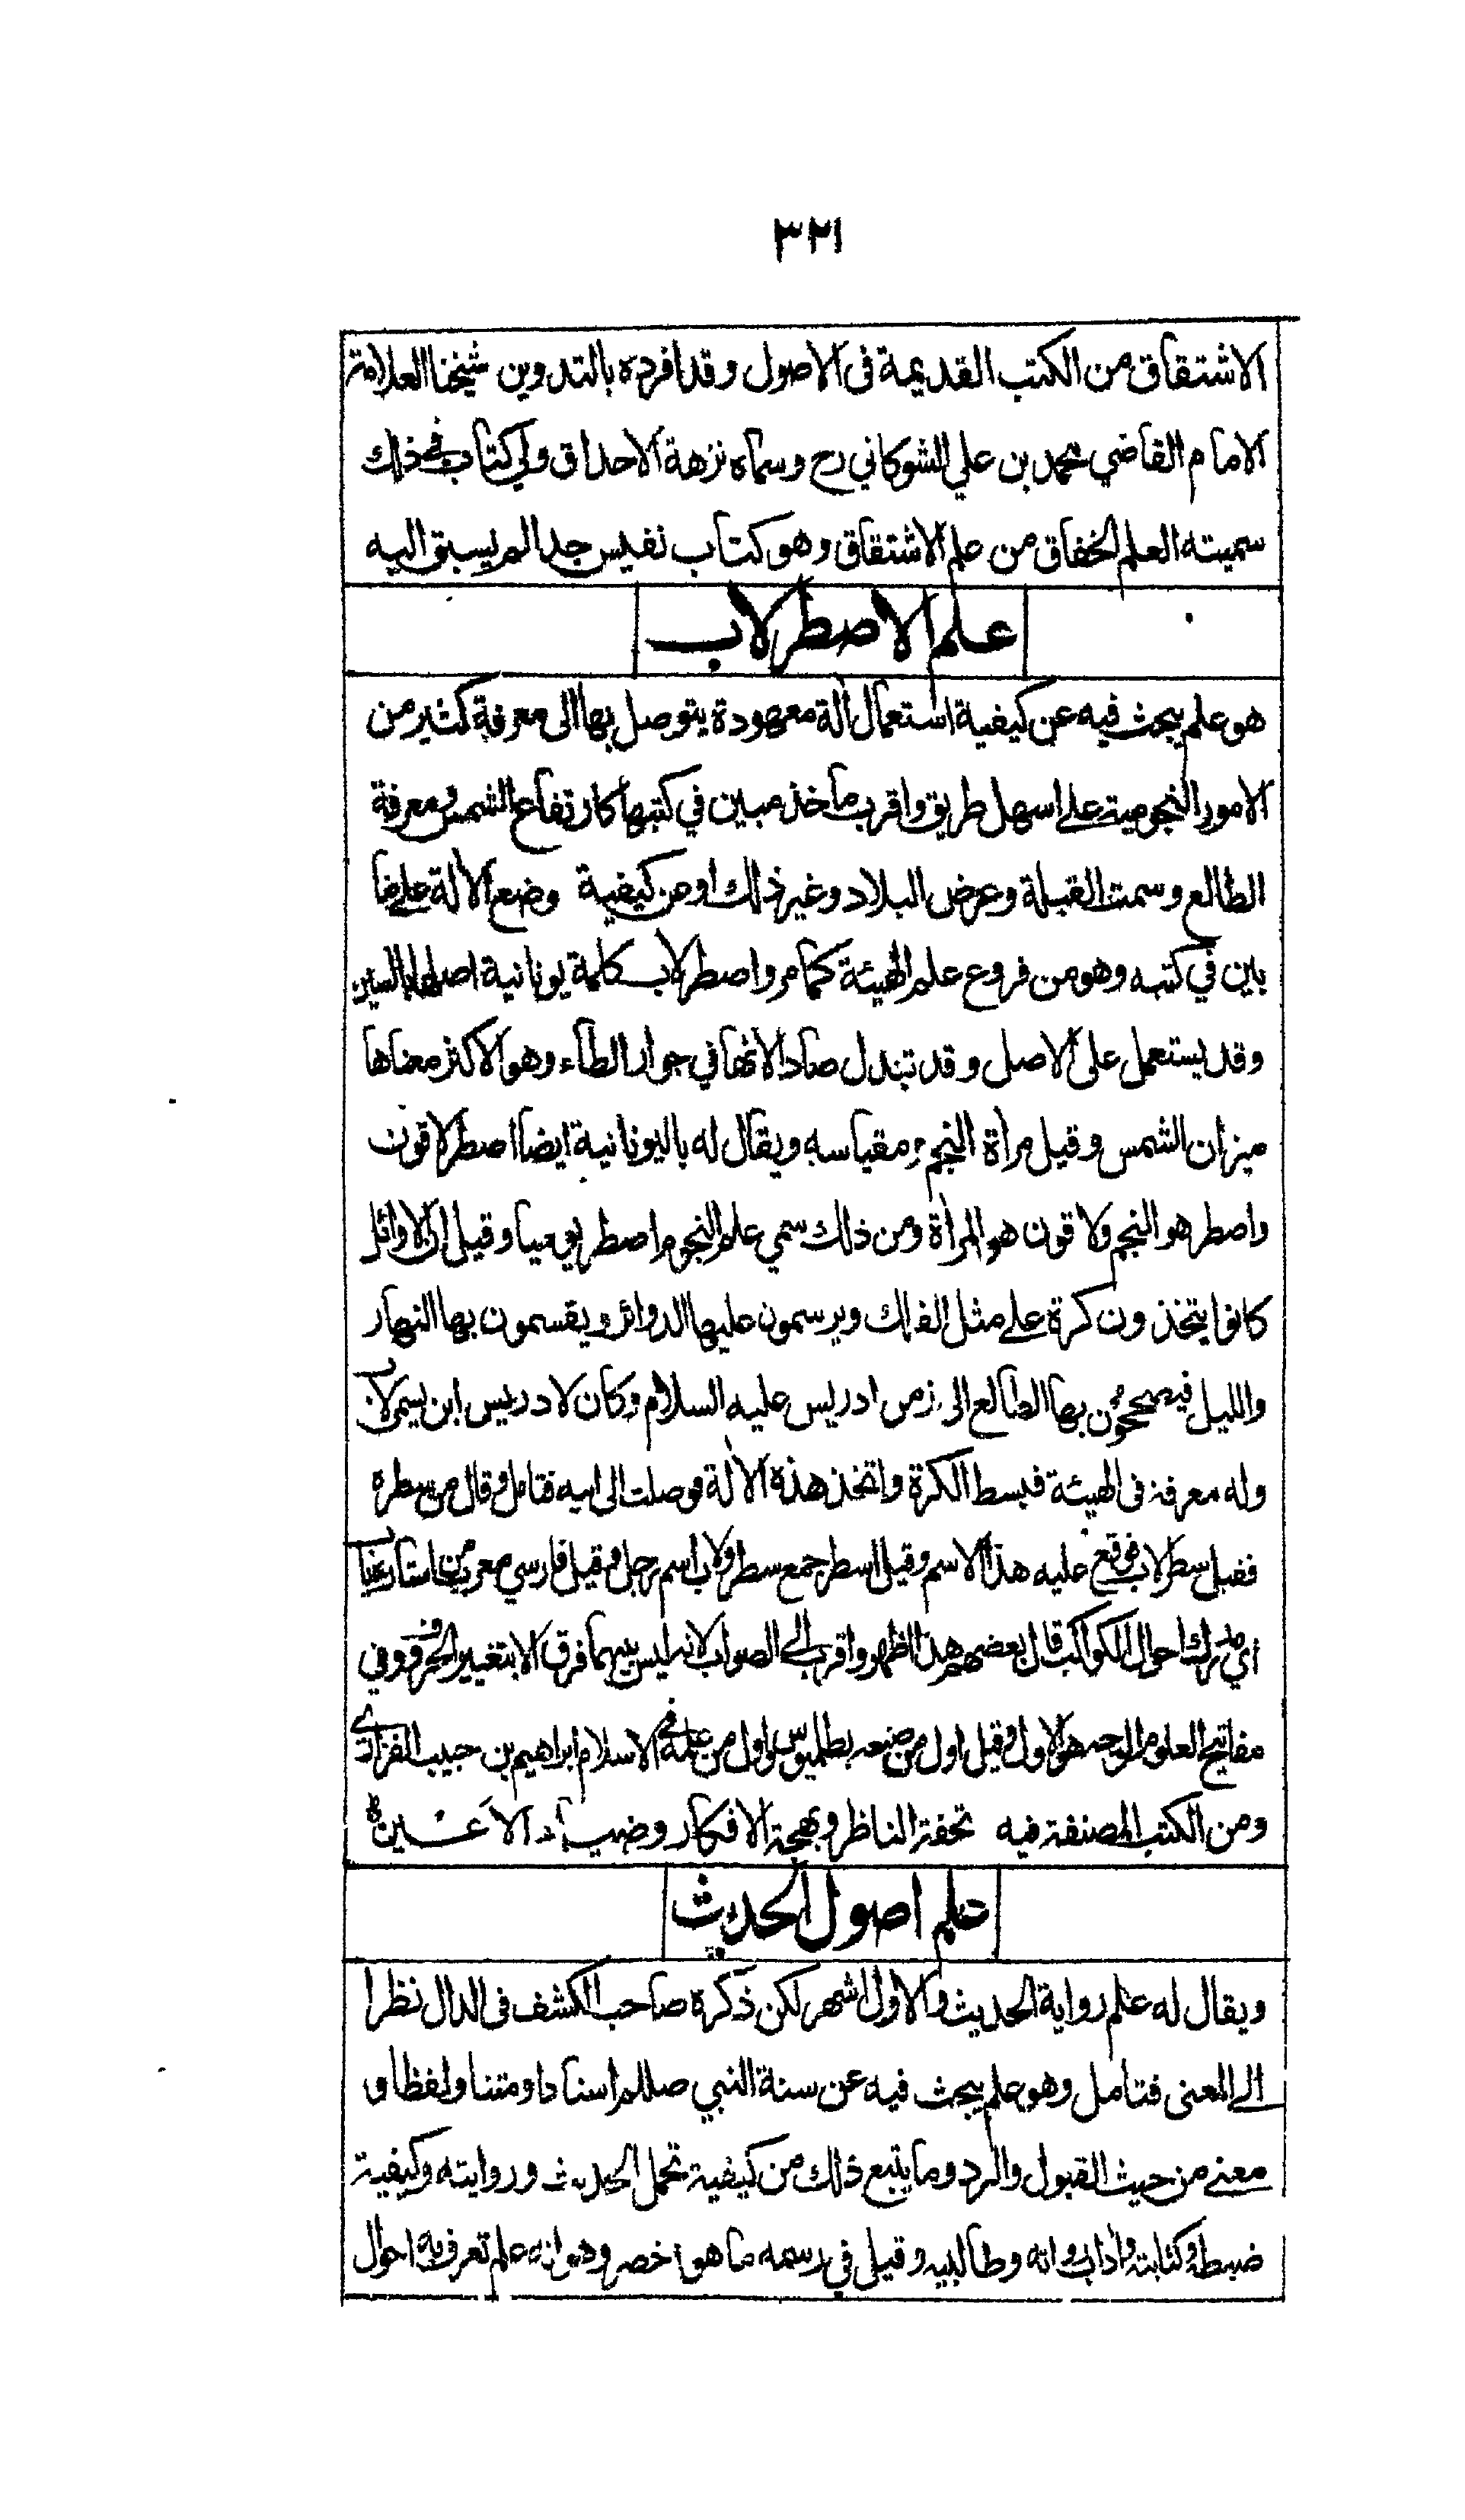 ٣٢١
الاشتقاق من الكتب القديمة فى الاصول وقد افرده بالتدوين شيخنا العلامة
الامام القاضي محمد بن علي الشوكاني رح وسماه نزهة الاحداق ولي كتاب في ذلك
سميته العلم الخفاق من علم الاشتقاق وهو كتاب نفيس جدا لم يسبق اليه
علم الاصطرلاب
هو علم يبحث فيه عن كيفية استعمال آلة معهودة يتوصل بها الى معرفة كثير من
الامور النجومية على اسهل طريق واقرب مأخذ مبين في كتبها كارتفاع الشمس ومعرفة
الطالع وسمت القبلة وعرض البلاد وغير ذلك او عن كيفية وضع الآلة على ما
بين في كتبه وهو من فروع علم الهيئة كما مر واصطرلاب كلمة يونانية اصلها بالسين
وقد يستعمل على الاصل وقد تبدل صادا لانها في جوار الطاء وهو الاكثر معناها
ميزان الشمس وقيل مرآة النجم ومقياسه ويقال له باليونانية ايضا اصطرلاقون
واصطر هو النجم ولاقون هو المرآة ومن ذلك سمي علم النجوم اصطريوميا وقيل ان الاوائل
كانوا يتخذون كرة على مثل الفلك ويرسمون عليها الدوائر ويقسمون بها النهار
والليل فيصححون بها الطالع الى زمن ادريس عليه السلام وكان لادريس ابن يسمى لاب
وله معرفة فى الهيئة فبسط الكرة واتخذ هذه الآلة فوصلت الى ابيه فتامل وقال من سطره
فقيل سطرلاب فوقع عليه هذا الاسم وقيل اسطر جمع سطر ولاب اسم رجل وقيل فارسي معرب من استاره ياب
اي مدرك احوال الكواكب قال بعضهم هذا اظهر واقرب الى الصواب لانه ليس بينهما فرق الا بتغيير الحروف وفي
مفاتيح العلوم الوجه هو الاول وقيل اول من صنعه بطلميوس واول من عمله في الاسلام ابراهيم بن حبيب الفزاري
ومن الكتب المصنفة فيه تحفة الناظر وبهجة الافكار وضياء الاعين
علم اصول الحديث
ويقال له علم رواية الحديث والاول اشهر لكن ذكره صاحب الكشف فى الدال نظرا
الى المعنى فتامل وهو علم يبحث فيه عن سنة النبي صللم اسنادا ومتنا ولفظا و
معنى من حيث القبول والرد وما يتبع ذلك من كيفية تحمل الحديث وروايته وكيفية
ضبطه وكتابته وآداب رواته وطالبيه وقيل في رسمه ما هو اخصر وهو انه علم تعرف به احوال